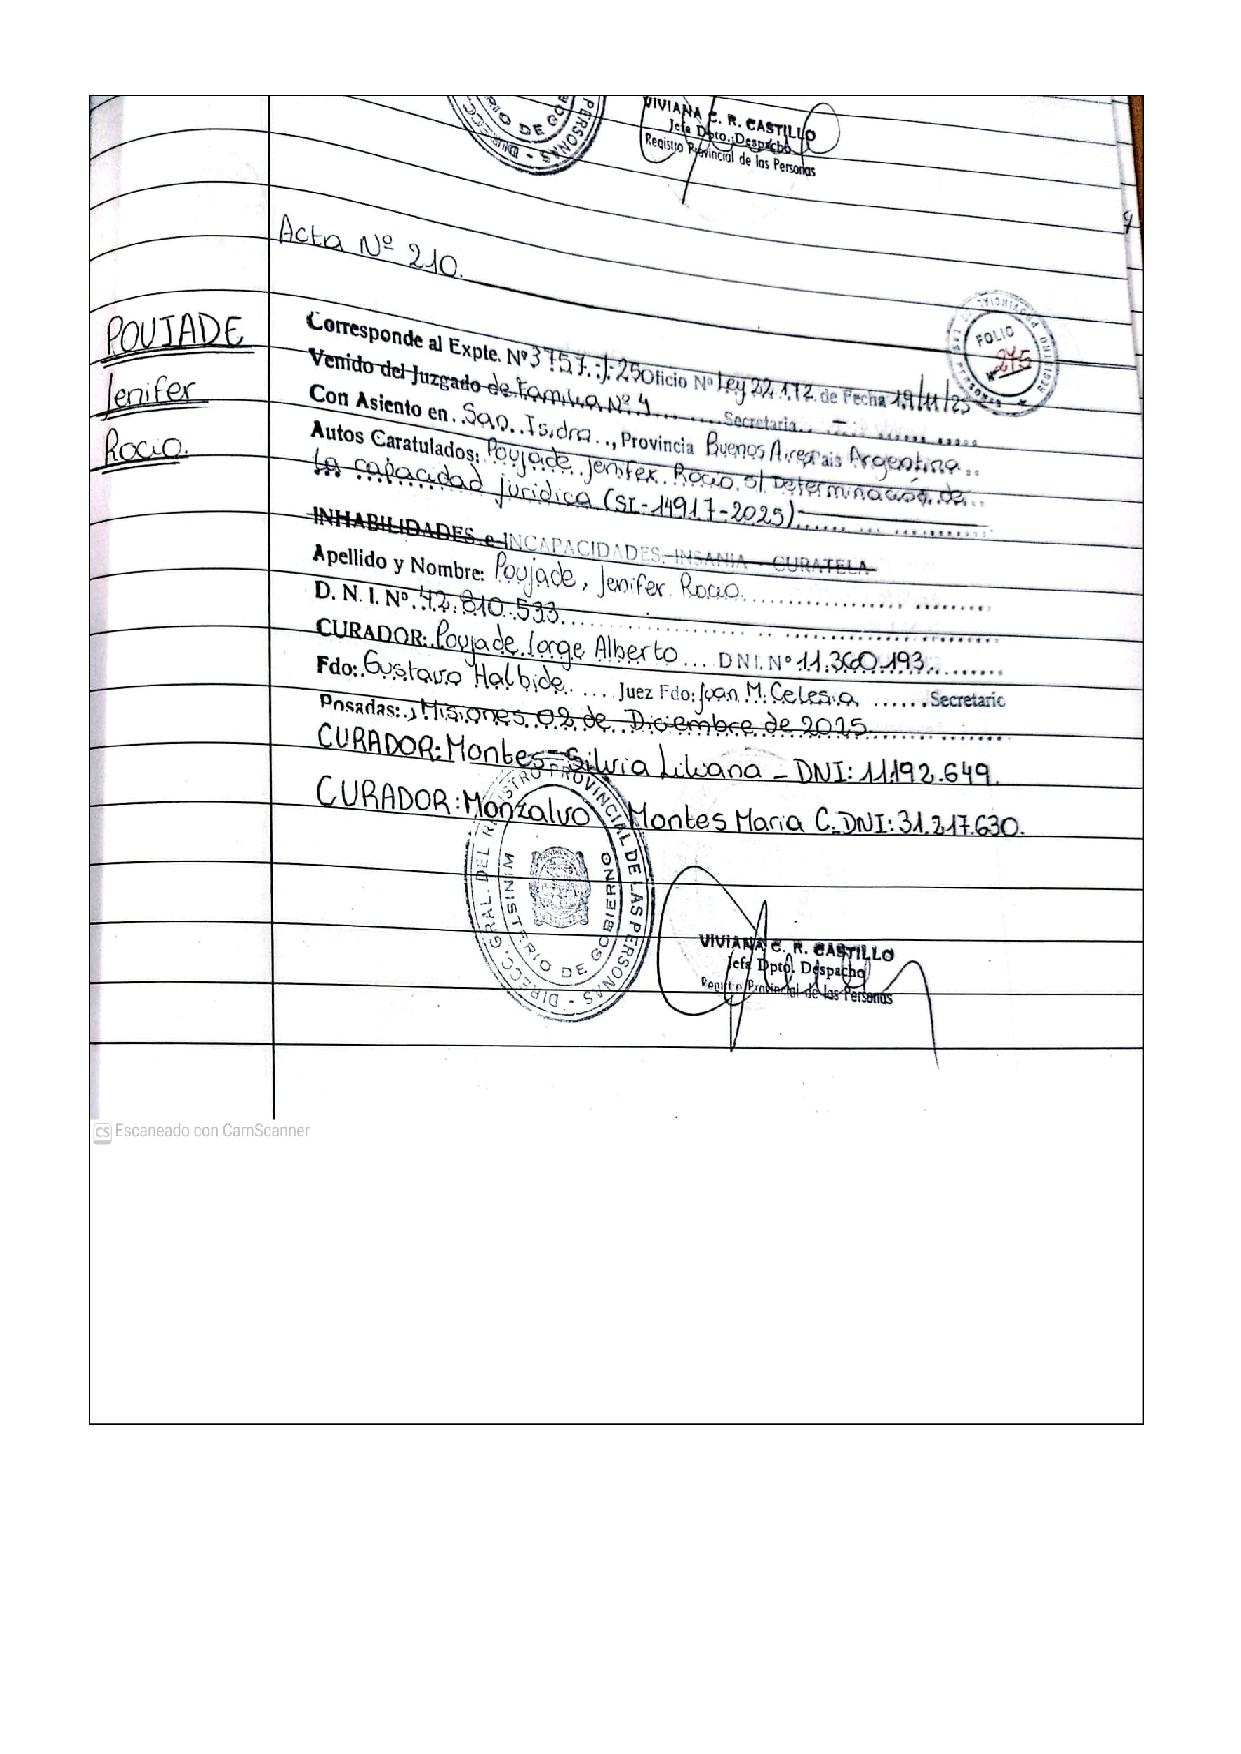 MINISTERIO DE GOBIERNO
DIRECC. GRAL. DEL REGISTRO PROVINCIAL DE LAS PERSONAS
VIVIANA C. R. CASTILLO
Jefa Dpto. Despacho
Registro Provincial de las Personas
Acta Nº 210.
POUJADE
Jenifer
Rocio.
FOLIO
275
Corresponde al Expte. Nº 3757.-J-25 Oficio Nº Ley 22.172 de Fecha 19/11/25
Venido del Juzgado de Familia Nº 4 Secretaria
Con Asiento en San Isidro, Provincia Buenos Aires Pais Argentina
Autos Caratulados: Poujade Jenifer Rocio s/ Determinación de
la capacidad juridica (SI-14917-2025)
INHABILIDADES e INCAPACIDADES. INSANIA - CURATELA
Apellido y Nombre: Poujade, Jenifer Rocio
D. N. I. Nº 42.810.533
CURADOR: Poujade Jorge Alberto DNI. Nº 11.360.193
Fdo: Gustavo Halbide Juez Fdo: Juan M. Celesia Secretario
Posadas:, Misiones 02 de Diciembre de 2025
CURADOR: Montes Silvia Liliana - DNI: 11.192.649.
CURADOR: Monzalvo Montes Maria C. DNI: 31.217.630.
DIRECC. GRAL. DEL REGISTRO PROVINCIAL DE LAS PERSONAS
MINISTERIO DE GOBIERNO
VIVIANA C. R. CASTILLO
Jefa Dpto. Despacho
Registro Provincial de las Personas
CS Escaneado con CamScanner